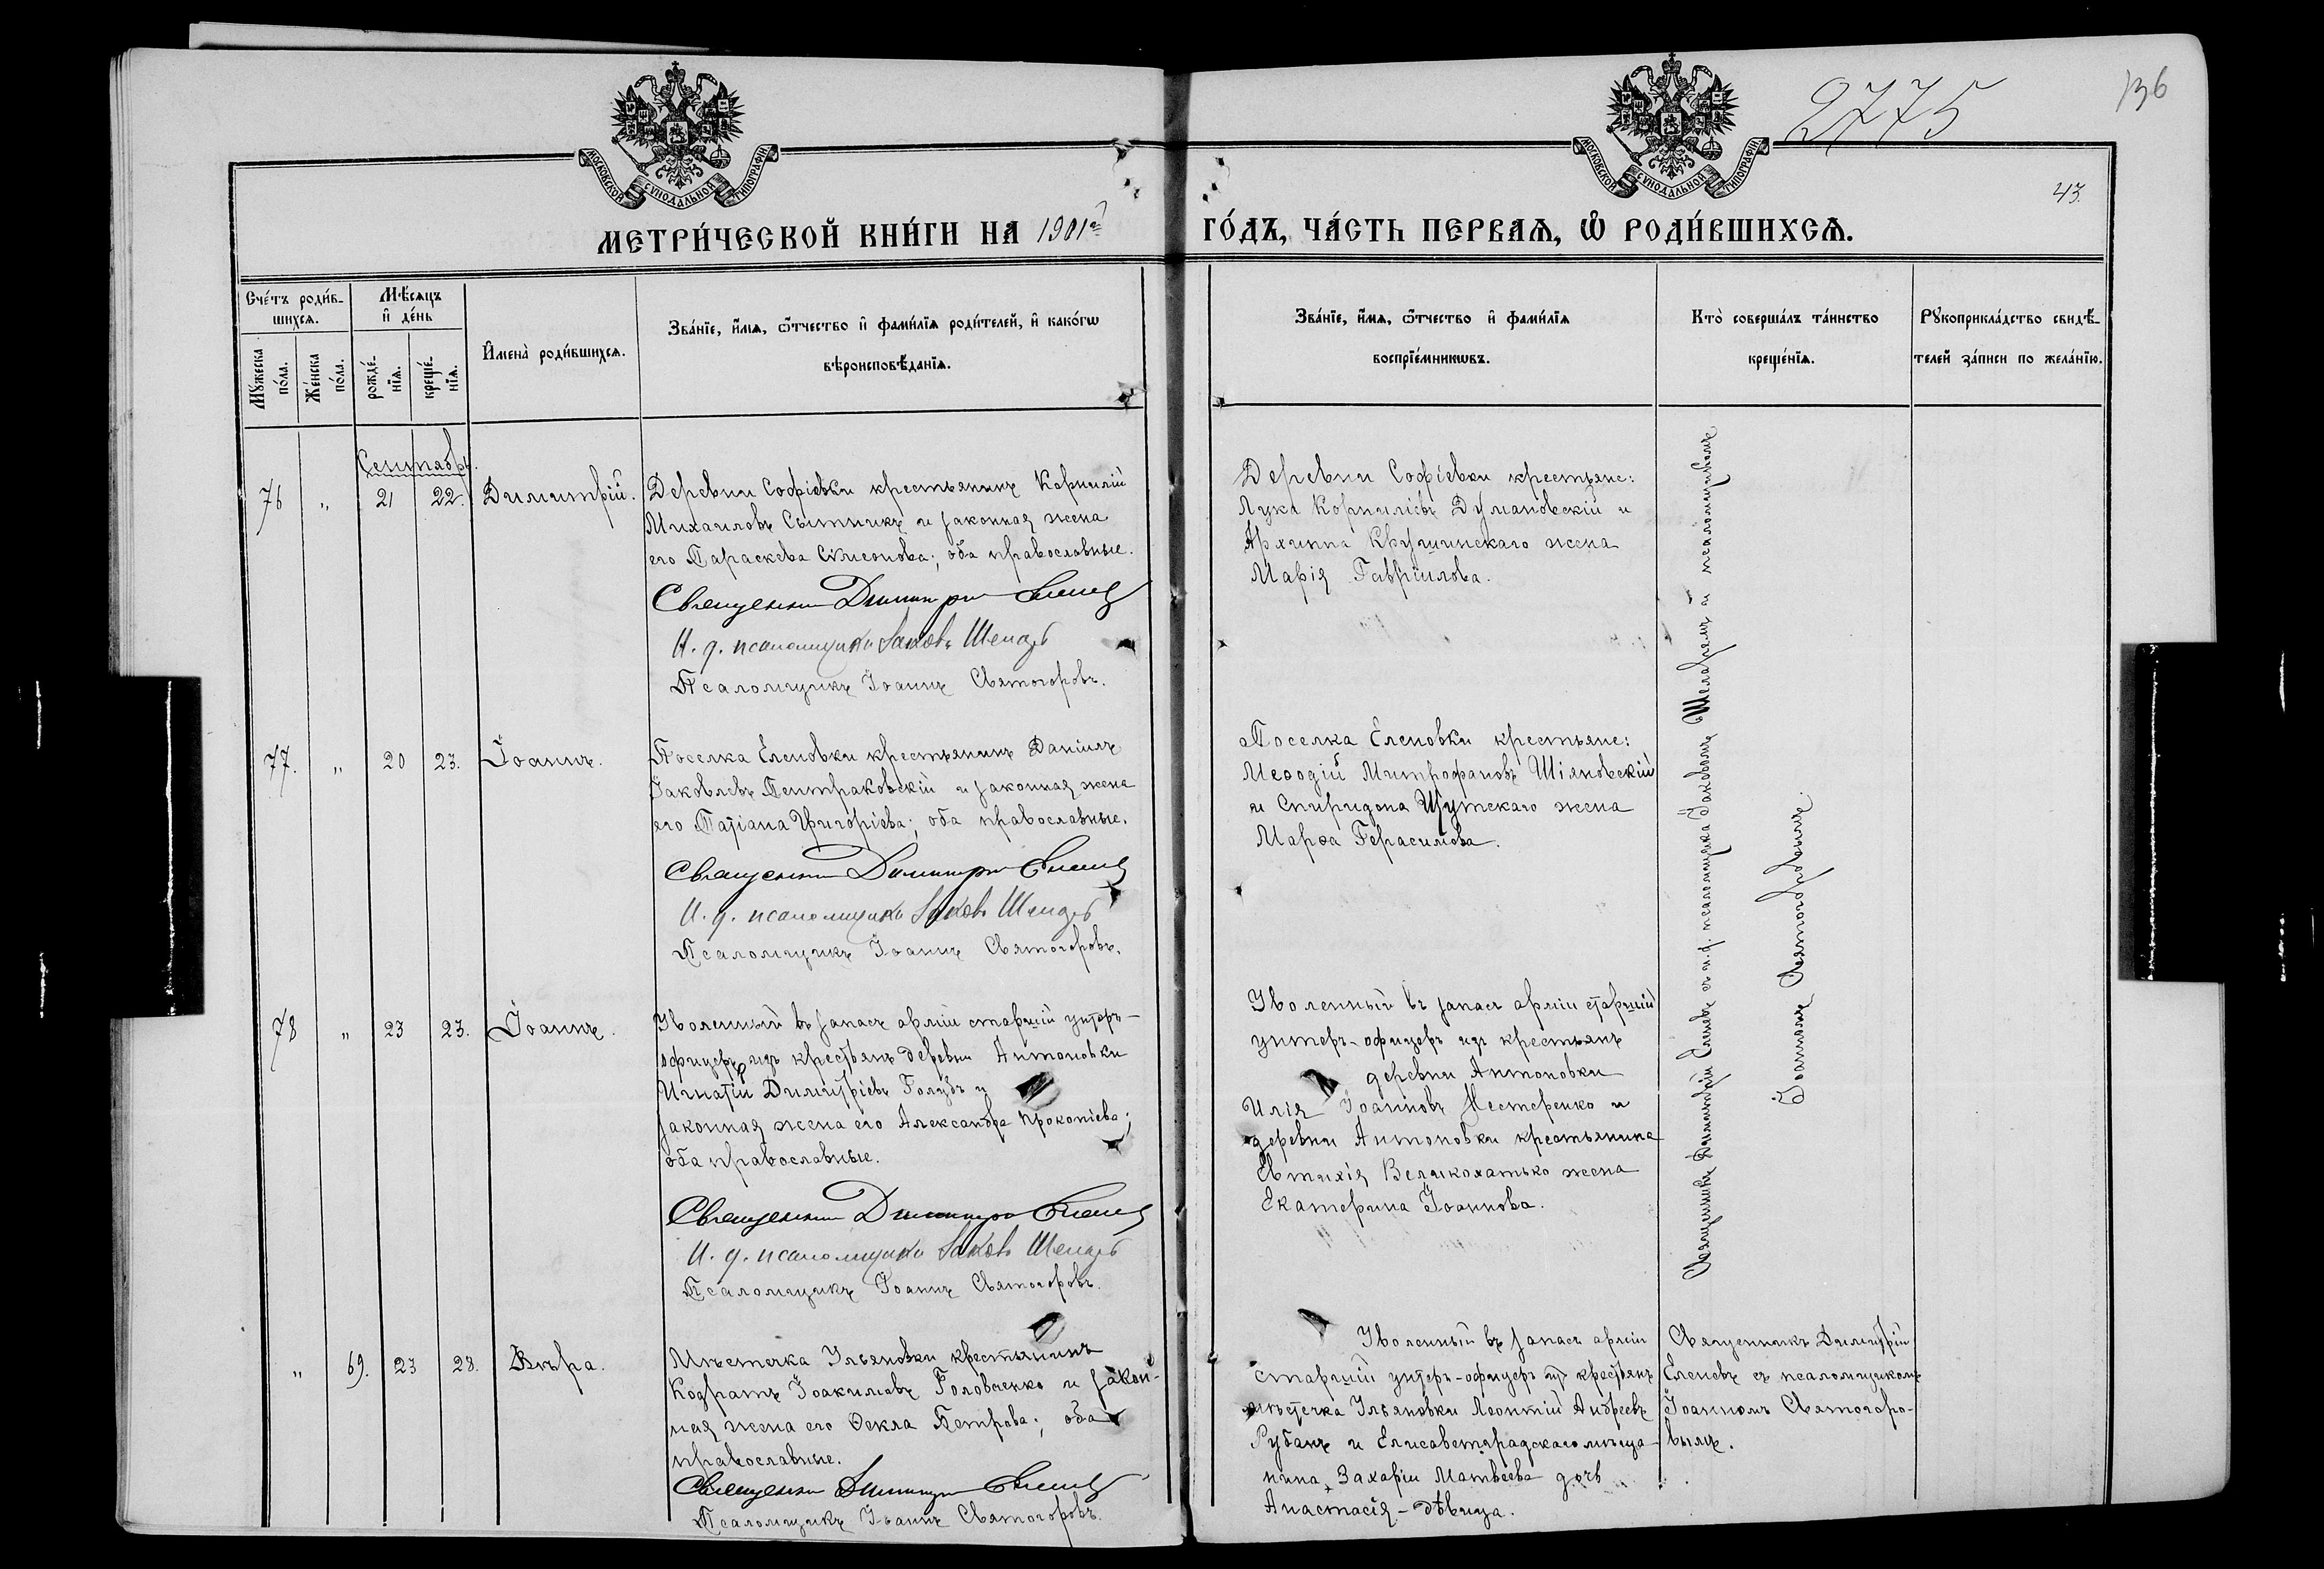 2775
136
43.
МОСКОВСКОЙ СѴНОДАЛЬНОЙ ТИПОГРАФІИ
МОСКОВСКОЙ СѴНОДАЛЬНОЙ ТИПОГРАФІИ
МЕТРИ́ЧЕСКОЙ КНИ́ГИ НА 1901й ГО́ДЪ, ЧА́СТЬ ПЕРВАѦ, Ѽ РОДИ́ВШИХСѦ.
Сче́тъ роди́в-
шихсѧ.
Мꙋжеска по́ла.
Же́нска по́ла.
Мѣ́сѧцъ
и҆ де́нь
рожде́-
нїѧ.
креще́-
нїѧ.
И҆мена̀ роди́вшихсѧ.
Зва́нїе, и҆́мѧ, ѻ҆́тчество и҆ фами́лїѧ роди́телей, и҆ како́гѡ
вѣроисповѣ́данїѧ.
Зва́нїе, и҆́мѧ, ѻ҆́тчество и҆ фами́лїѧ
воспрїе́мникѡвъ.
Кто̀ соверша́лъ та́инство
креще́нїѧ.
Рꙋкоприкла́дство свидѣ́-
телей за́писи по жела́нїю.
Сентябрь.
76 „ 21 22. Димитрій.
Деревни Софіевки крестьянинъ Корнилій
Михаиловъ Сытникъ и законная жена
его Параскева Симеонова; оба православные.
Священникъ Димитрій Еленевъ
И. д. псаломщика Іаковъ
Псаломщикъ Іоаннъ Святогоровъ.
Деревни Софіевки крестьяне:
Лука Корниліевъ Думановскій и
Архиппа Крушинскаго жена
Марія Гавріилова.
77. „ 20 23. Іоаннъ.
Поселка Еленовки крестьянинъ Даніилъ
Іаковлевъ Пентраковскій и законная жена
его Татіана Григоріева; оба православные.
Священникъ Димитрій Еленевъ
И. д. псаломщика Іаковъ
Псаломщикъ Іоаннъ Святогоровъ.
Поселка Еленовки крестьяне:
Меѳодій Митрофановъ Шіяновскій
и Спиридона Шутскаго жена
Марѳа Герасимова.
78 „ 23 23. Іоаннъ.
Уволенный въ запасъ арміи старшій унтеръ-
офицеръ изъ крестьянъ деревни Антоновки
Игнатій Димитріевъ Голубъ и
законная жена его Александра Прокопіева;
оба православные.
Священникъ Димитрій Еленевъ
И. д. псаломщика Іаковъ
Псаломщикъ Іоаннъ Святогоровъ.
Уволенный въ запасъ арміи старшій
унтеръ-офицеръ изъ крестьянъ
деревни Антоновки
Илія Іоанновъ Нестеренко и
деревни Антоновки крестьянина
Евтихія Великохатько жена
Екатерина Іоаннова.
Священникъ Димитрій Еленевъ съ и. д. псаломщика Іаковомъ и псаломщикомъ
Іоанномъ Святогоровымъ.
„ 69. 23 28. Вѣра.
Мѣстечка Ульяновки крестьянинъ
Кодратъ Іоакимовъ Головченко и закон-
ная жена его Ѳекла Петрова; оба
православные.
Священникъ Димитрій Еленевъ
Псаломщикъ Іоаннъ Святогоровъ.
Уволенный въ запасъ арміи
старшій унтеръ-офицеръ изъ крестьянъ
мѣстечка Ульяновки Леонтій Андреевъ
Рубанъ и Елисаветградскаго мѣща-
нина Захаріи Матвѣева дочь
Анастасія - дѣвица.
Священникъ Димитрій
Еленевъ съ псаломщикомъ
Іоанномъ Святогоро-
вымъ.